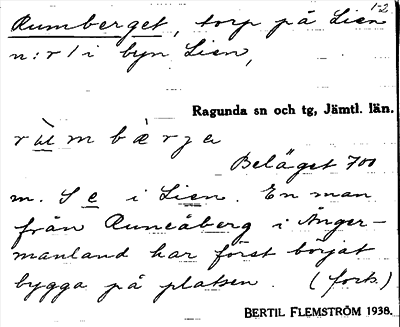 1-2
Rumberget, torp på Lien
n:r 1 i byn Lien,
Ragunda sn och tg, Jämtl. län.
rùmbærja
Beläget 700
m. S e i Lien. En man
från Runeåberg i Ånger-
manland har först börjat
bygga på platsen. (forts.)
BERTIL FLEMSTRÖM 1938.